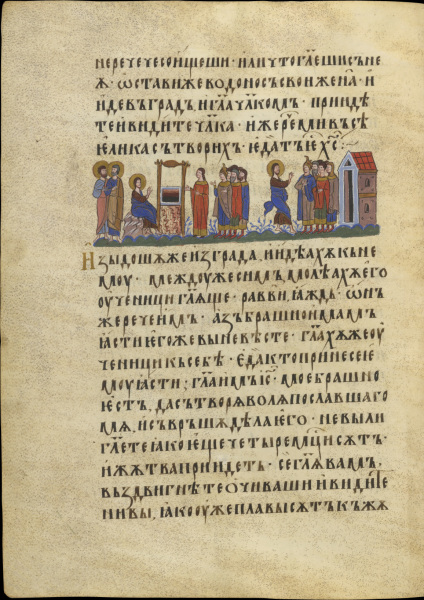 неречечесоищеши · иличтогл҃ешисъне
ѫ · ѡставижеводоносъсвоижена · и
идевъградъ, игл҃ачл҃комъ · прїидѣ
теивидитечл҃ка · ижер҃емивъсѣ
еликасътворихъ · едатъіех҃с :
Изыдошѫжеизграда, иидѣахѫкъне
моу · междоужесимъмолѣахѫего
оученицигл҃ѧще · равви, ꙗждь · ѡнъ
жеречеимъ · азъбрашноимамъ
ꙗстиегожевыневѣсте · гл҃ахѫжеоу
ченицикъсебѣ · едакtopринесеіе
моуꙗсти ; гл҃аимъі҃с · моебрашно
ѥстъ, дасътворѧволѧпославшаго
мѧ, исъвръшѫдѣлаіего · невыли
гл҃етеꙗкоіещечетыремц҃исѫтъ ·
ижѫтваприидетъ · сегл҃ѧвамъ,
въздвигнѣтеочивашиивидите
нивы, ꙗкоужеплавысѫтъкъжѫ